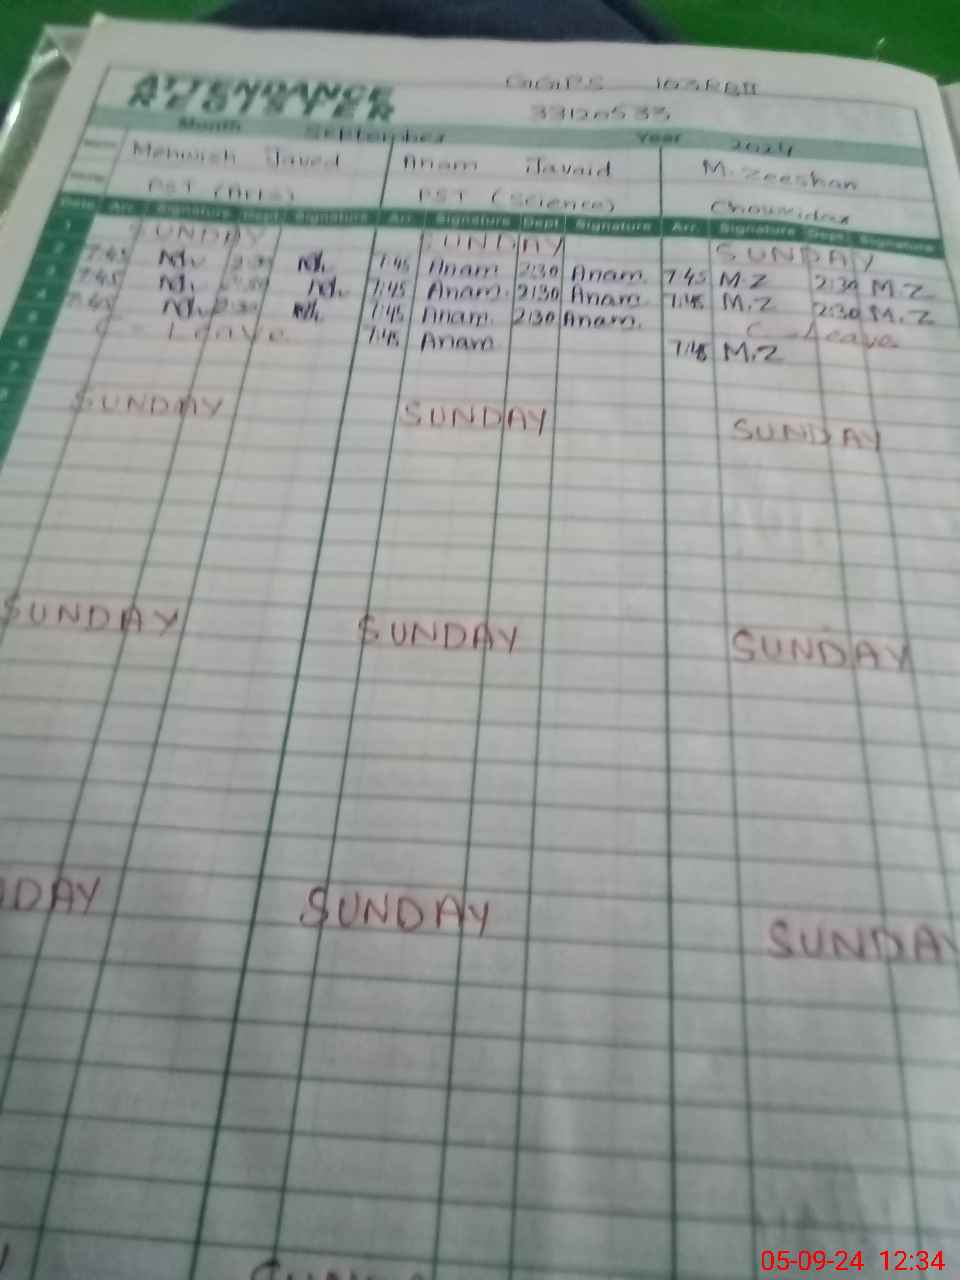 ATTENDANCE GGPS 103RBII
REGISTER 33120533
Month September Year 2024
Mehwish Javed Anam Javaid M. Zeeshan
PST (Arts) PST (Science) Chowkidar
Date Arr. Signature Dept. Signature Arr. Signature Dept. Signature Arr. Signature Dept. Signature
1 SUNDAY SUNDAY SUNDAY
2 7:45 2:30 7:45 Anam 2:30 Anam 7:45 M.Z 2:30 M.Z
3 7:45 2:30 7:45 Anam 2:30 Anam 7:45 M.Z 2:30 M.Z
4 7:45 2:30 7:45 Anam 2:30 Anam. C Leave
5 C Leave 7:45 Anam 7:45 M.Z
6
7
8 SUNDAY SUNDAY SUNDAY
SUNDAY SUNDAY SUNDAY
DAY SUNDAY SUNDA
05-09-24 12:34